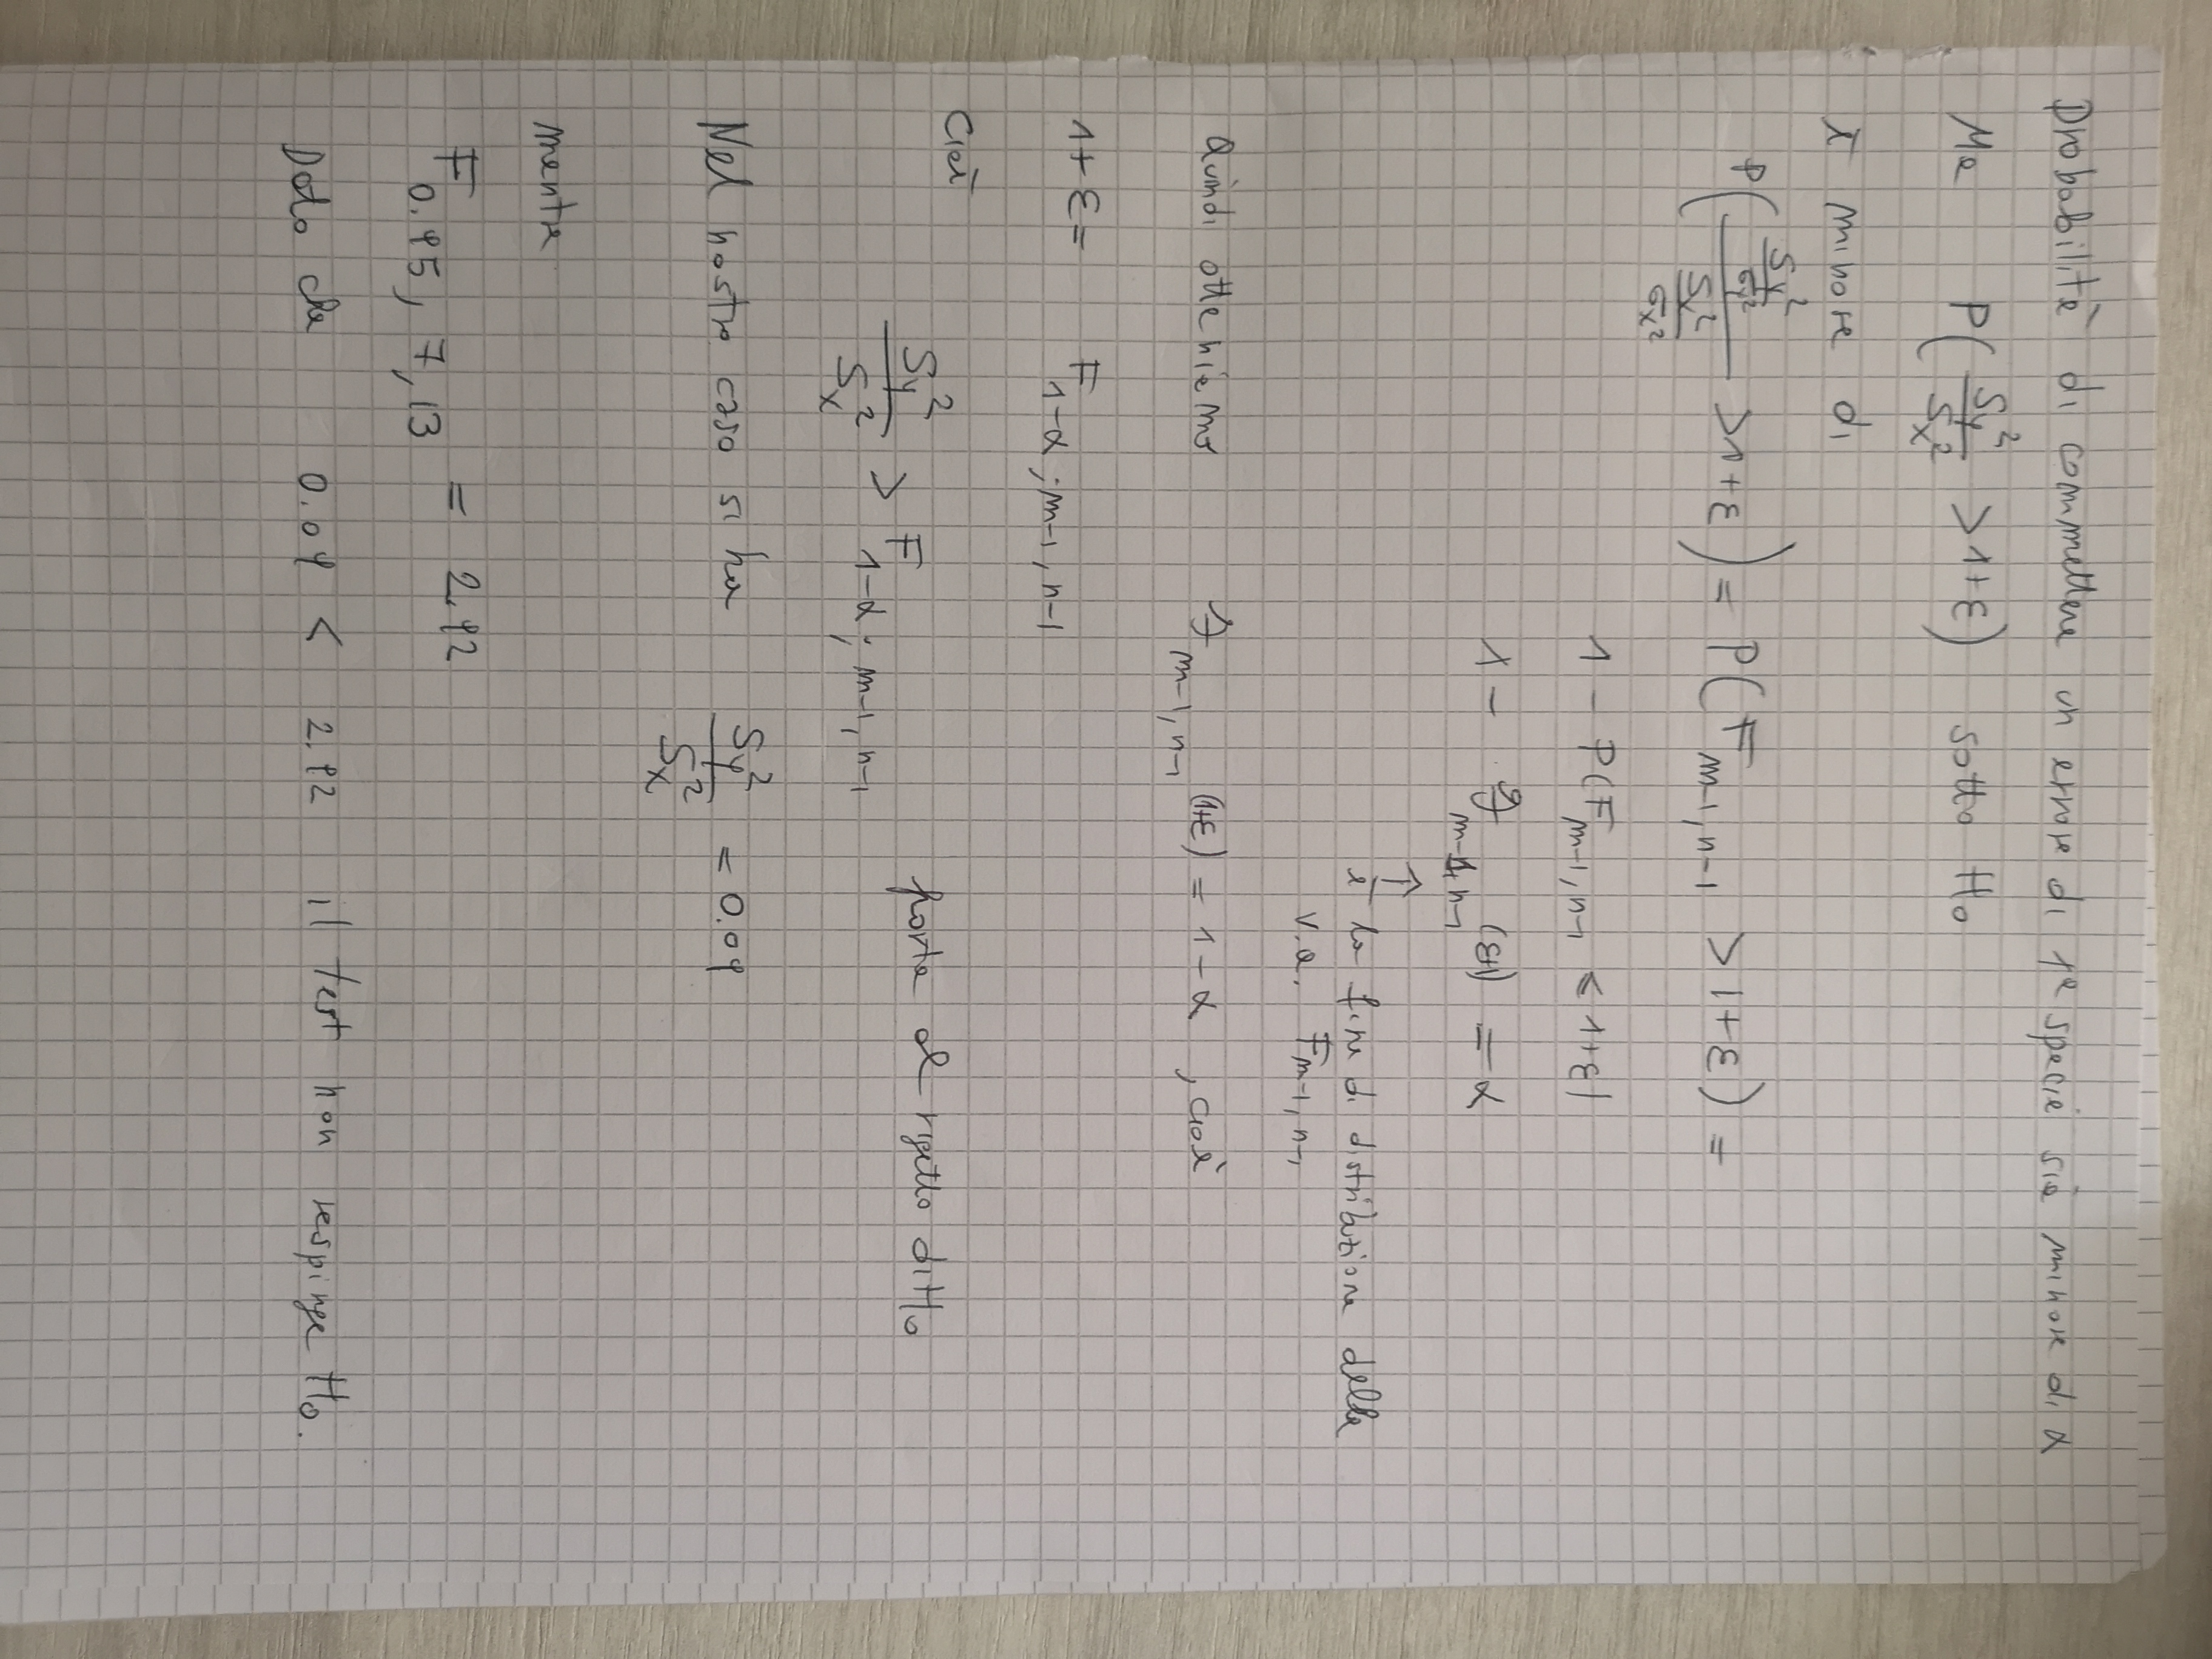 Probabilità di commettere un errore di 1ª specie sia minore di α
Ma P( Sy² / Sx² > 1+ε ) sotto H₀
è minore di
P( (Sy²/σy²) / (Sx²/σx²) > 1+ε ) = P( F m-1, n-1 > 1+ε ) =
1 - P( F m-1, n-1 ≤ 1+ε )
1 - ℱ m-1, n-1 (ε+1) = α
↑
è la fzne di distribuzione della
v.a. F m-1, n-1
Quindi otteniamo ℱ m-1, n-1 (1+ε) = 1-α , cioè
1+ε = F 1-α ; m-1, n-1
Cioè Sy² / Sx² > F 1-α ; m-1, n-1 porta al rigetto di H₀
Nel nostro caso si ha Sy² / Sx² = 0.09
mentre
F 0.95, 7, 13 = 2.92
Dato che 0.09 < 2.92 il test non respinge H₀.